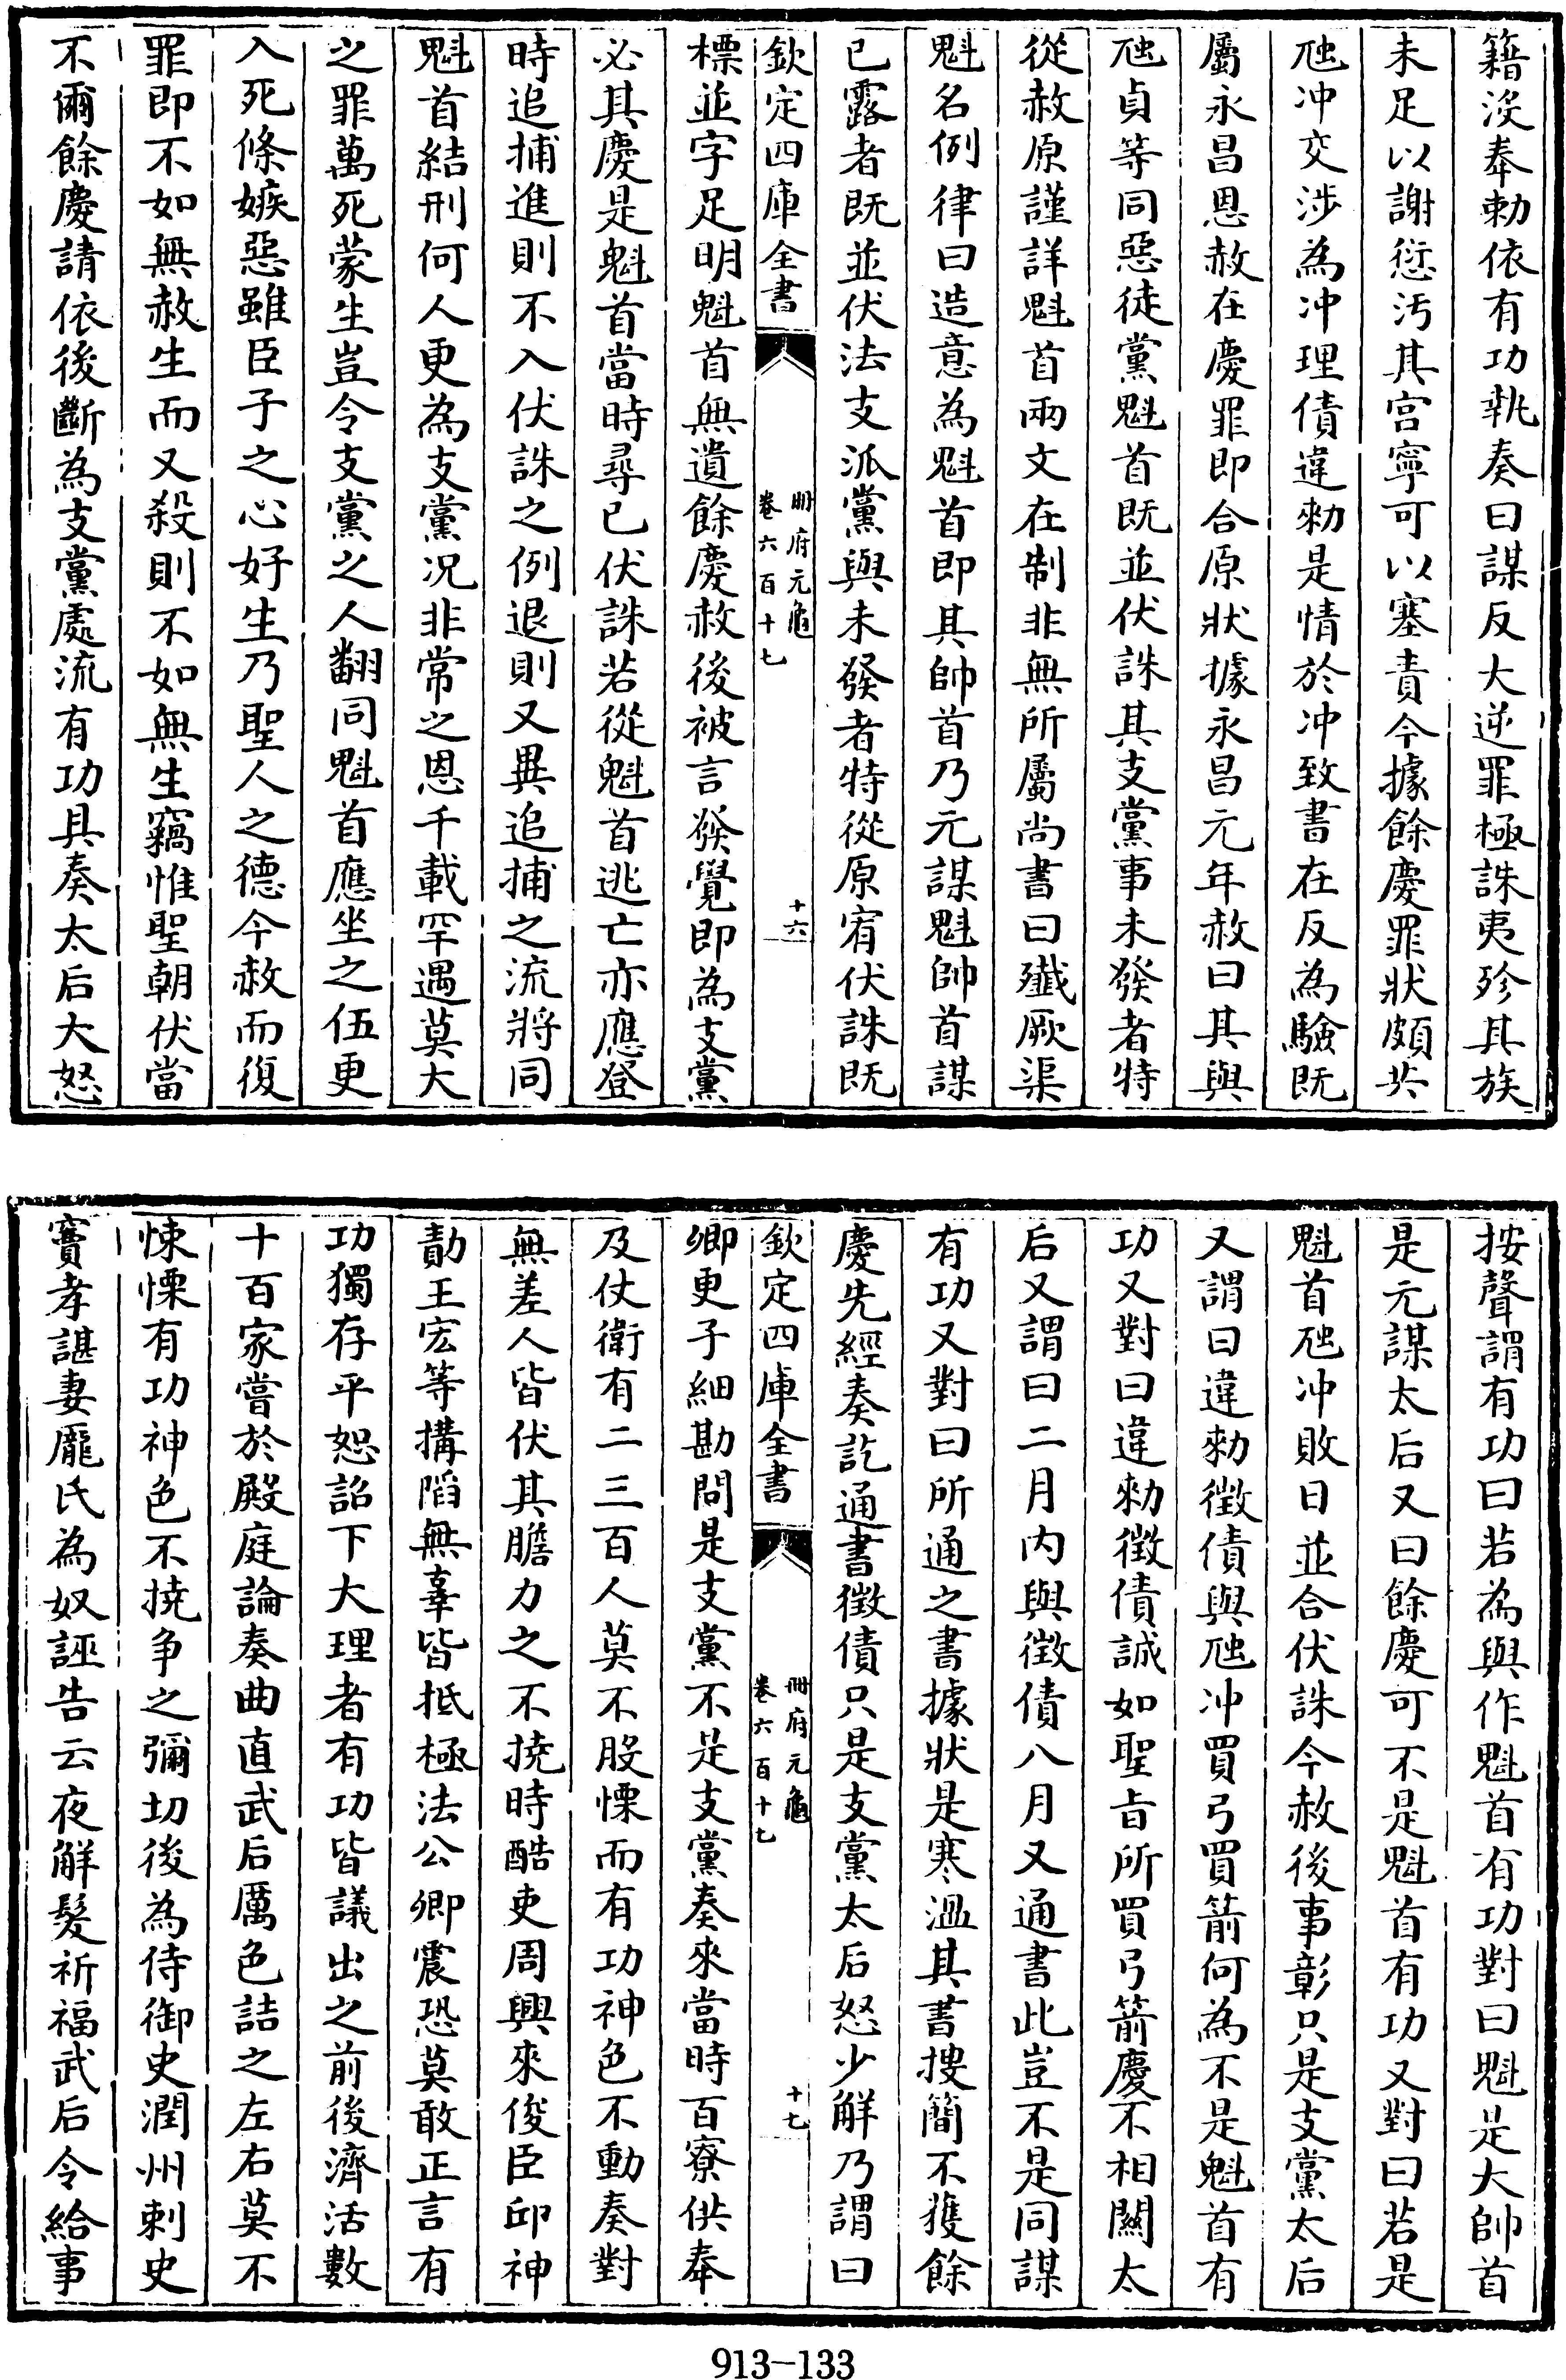 籍沒奉勅依有功執奏曰謀反大逆罪極誅夷殄其族
未足以謝愆汚其宫寧可以塞責今據餘慶罪狀頗共
虺冲交涉為冲理債違勅是情於冲致書在反為驗既
屬永昌恩赦在慶罪即合原狀據永昌元年赦曰其與
虺貞等同惡徒黨魁首既並伏誅其支黨事未發者特
從赦原謹詳魁首兩文在制非無所屬尚書曰殲厥渠
魁名例律曰造意為魁首即其帥首乃元謀魁帥首謀
已露者既並伏法支派黨與未發者特從原宥伏誅既
欽定四庫全書
冊府元龜
卷六百十七
十六
標並字足明魁首無遺餘慶赦後被言發覺即為支黨
必其慶是魁首當時尋已伏誅若從魁首逃亡亦應登
時追捕進則不入伏誅之例退則又異追捕之流將同
魁首結刑何人更為支黨况非常之恩千載罕遇莫大
之罪萬死蒙生豈令支黨之人翻同魁首應坐之伍更
入死條嫉惡雖臣子之心好生乃聖人之德今赦而復
罪即不如無赦生而又殺則不如無生竊惟聖朝伏當
不爾餘慶請依後斷為支黨處流有功具奏太后大怒
按聲謂有功曰若為與作魁首有功對曰魁是大帥首
是元謀太后又曰餘慶可不是魁首有功又對曰若是
魁首虺冲敗日並合伏誅今赦後事彰只是支黨太后
又謂曰違勅徵債與虺冲買弓買箭何為不是魁首有
功又對曰違勅徵債誠如聖旨所買弓箭慶不相闗太
后又謂曰二月内與徵債八月又通書此豈不是同謀
有功又對曰所通之書據狀是寒溫其書搜簡不獲餘
慶先經奏訖通書徵債只是支黨太后怒少解乃謂曰
欽定四庫全書
冊府元龜
卷六百十七
十七
卿更子細勘問是支黨不是支黨奏來當時百寮供奉
及仗衛有二三百人莫不股慄而有功神色不動奏對
無差人皆伏其膽力之不撓時酷吏周興來俊臣邱神
勣王宏等搆䧟無辜皆抵極法公卿震恐莫敢正言有
功獨存平恕詔下大理者有功皆議出之前後濟活數
十百家嘗於殿庭論奏曲直武后厲色詰之左右莫不
悚慄有功神色不撓争之彌切後為侍御史潤州刺史
竇孝諶妻龎氏為奴誣告云夜解髮祈福武后令給事
913—133